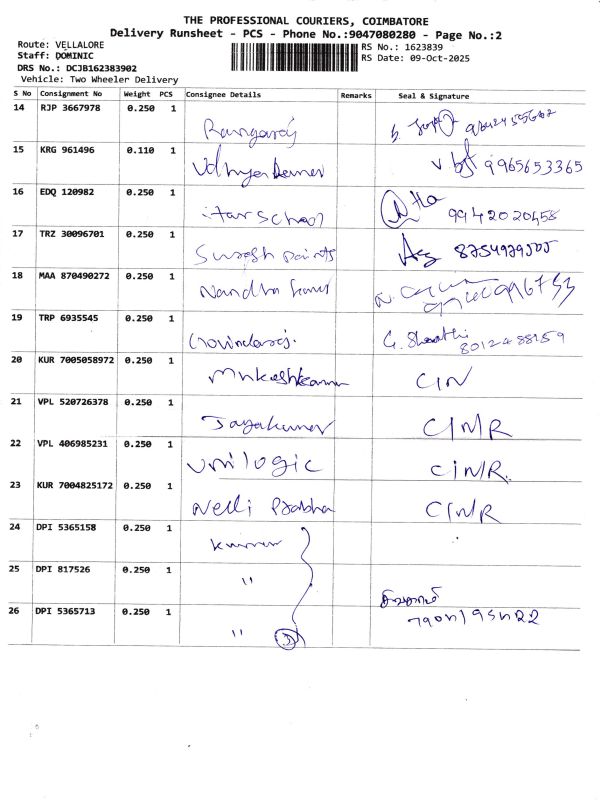 THE PROFESSIONAL COURIERS, COIMBATORE
Delivery Runsheet - PCS - Phone No.:9047080280 - Page No.:2
Route: VELLALORE
Staff: DOMINIC
DRS No.: DCJB162383902
Vehicle: Two Wheeler Delivery
RS No.: 1623839
RS Date: 09-Oct-2025
S No Consignment No Weight PCS Consignee Details Remarks Seal & Signature
14 RJP 3667978 0.250 1 Rangaraj
15 KRG 961496 0.110 1 Udhyakumar 9965653365
16 EDQ 120982 0.250 1 itar School 9942020458
17 TRZ 30096701 0.250 1 Suresh paints
18 MAA 870490272 0.250 1 Nandha kumar
19 TRP 6935545 0.250 1 Govindaraj. 8012488159
20 KUR 7005058972 0.250 1 Mukeshkumar C/N
21 VPL 520726378 0.250 1 Jayakumar C/N/R
22 VPL 406985231 0.250 1 Unilogic C/N/R.
23 KUR 7004825172 0.250 1 Nelli Prabha C/N/R
24 DPI 5365158 0.250 1
25 DPI 817526 0.250 1 "
26 DPI 5365713 0.250 1 " 3